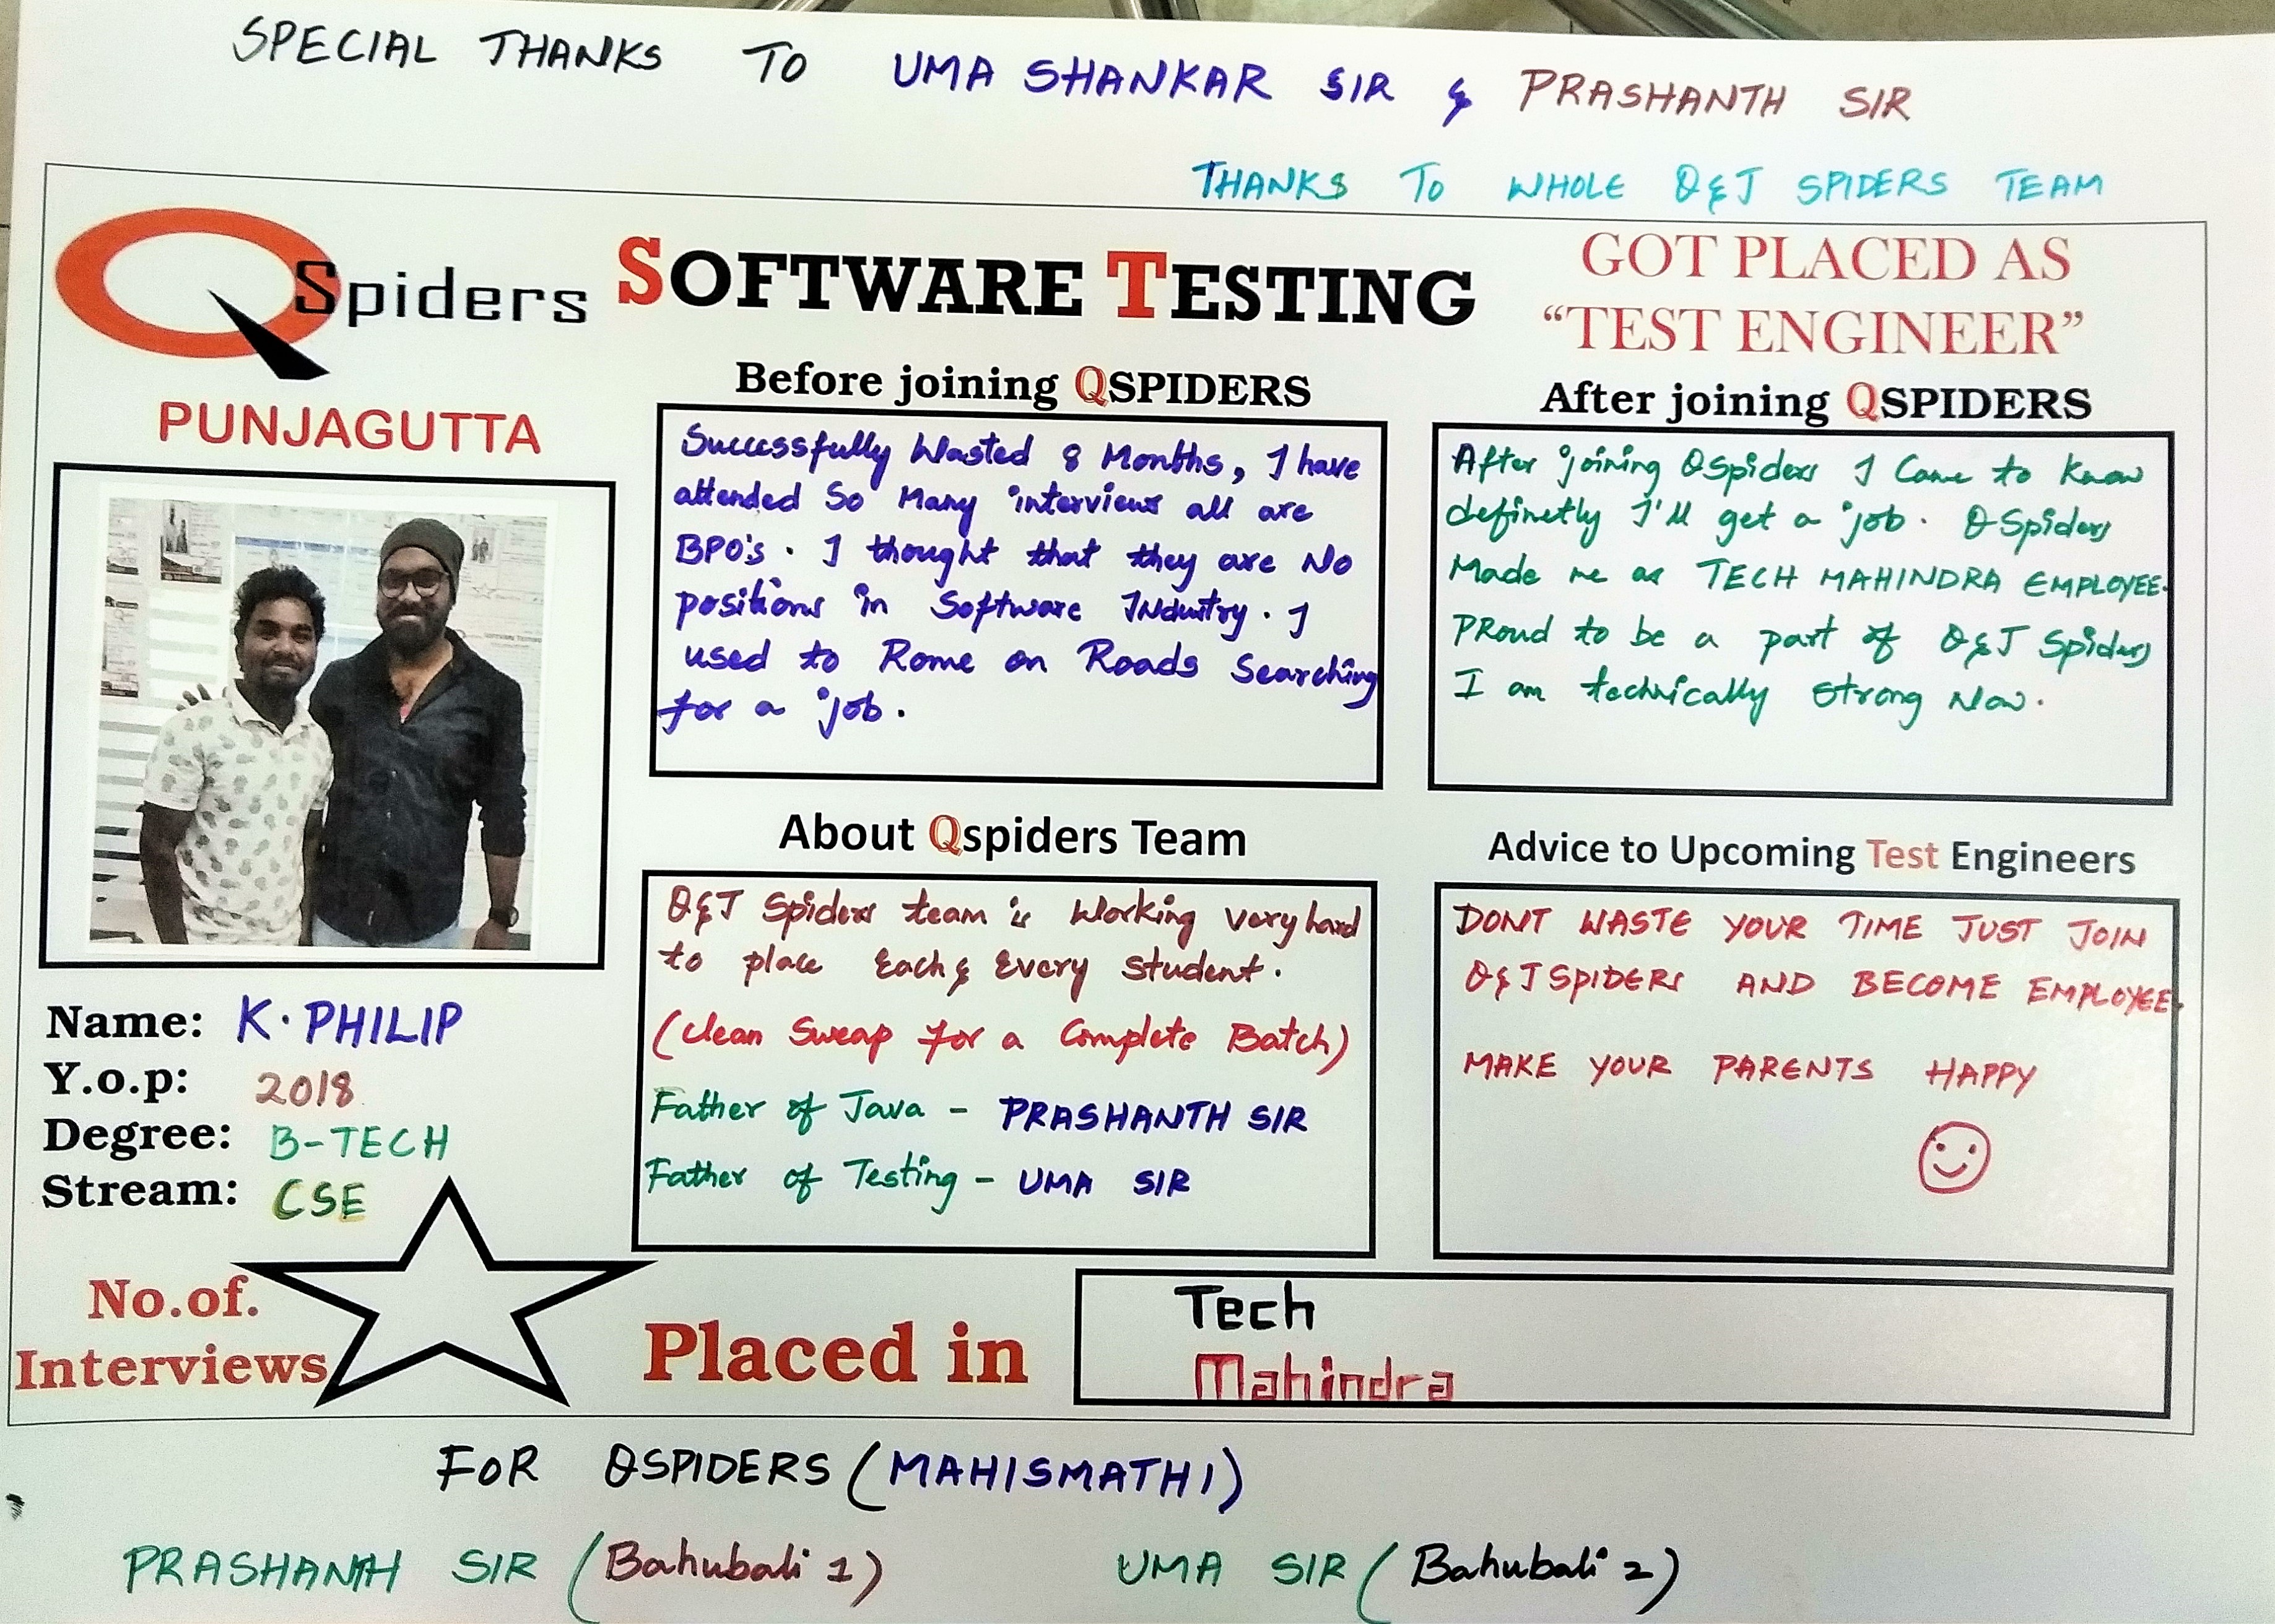 SPECIAL THANKS TO UMA SHANKAR SIR & PRASHANTH SIR
THANKS TO WHOLE Q&J SPIDERS TEAM
QSpiders
PUNJAGUTTA
SOFTWARE TESTING
GOT PLACED AS
“TEST ENGINEER”
Before joining QSPIDERS
Successfully Wasted 8 Months, I have
attended So Many interviews all are
BPO's. I thought that they are No
positions in Software INdustry. I
used to Rome on Roads Searching
for a job.
After joining QSPIDERS
After joining QSpiders I Came to know
definetly I'll get a job. QSpiders
Made me as TECH MAHINDRA EMPLOYEE.
PRoud to be a part of Q&J Spiders
I am technically strong Now.
About Qspiders Team
Q&J Spiders team is Working very hard
to place Each & Every student.
(Clean Sweap for a Complete Batch)
Father of Java - PRASHANTH SIR
Father of Testing - UMA SIR
Advice to Upcoming Test Engineers
DONT WASTE YOUR TIME JUST JOIN
Q&J SPIDERS AND BECOME EMPLOYEE.
MAKE YOUR PARENTS HAPPY
Name: K. PHILIP
Y.o.p: 2018
Degree: B-TECH
Stream: CSE
No.of.
Interviews
Placed in
Tech
Mahindra
FOR QSPIDERS (MAHISMATHI)
PRASHANTH SIR (Bahubali 1) UMA SIR (Bahubali 2)